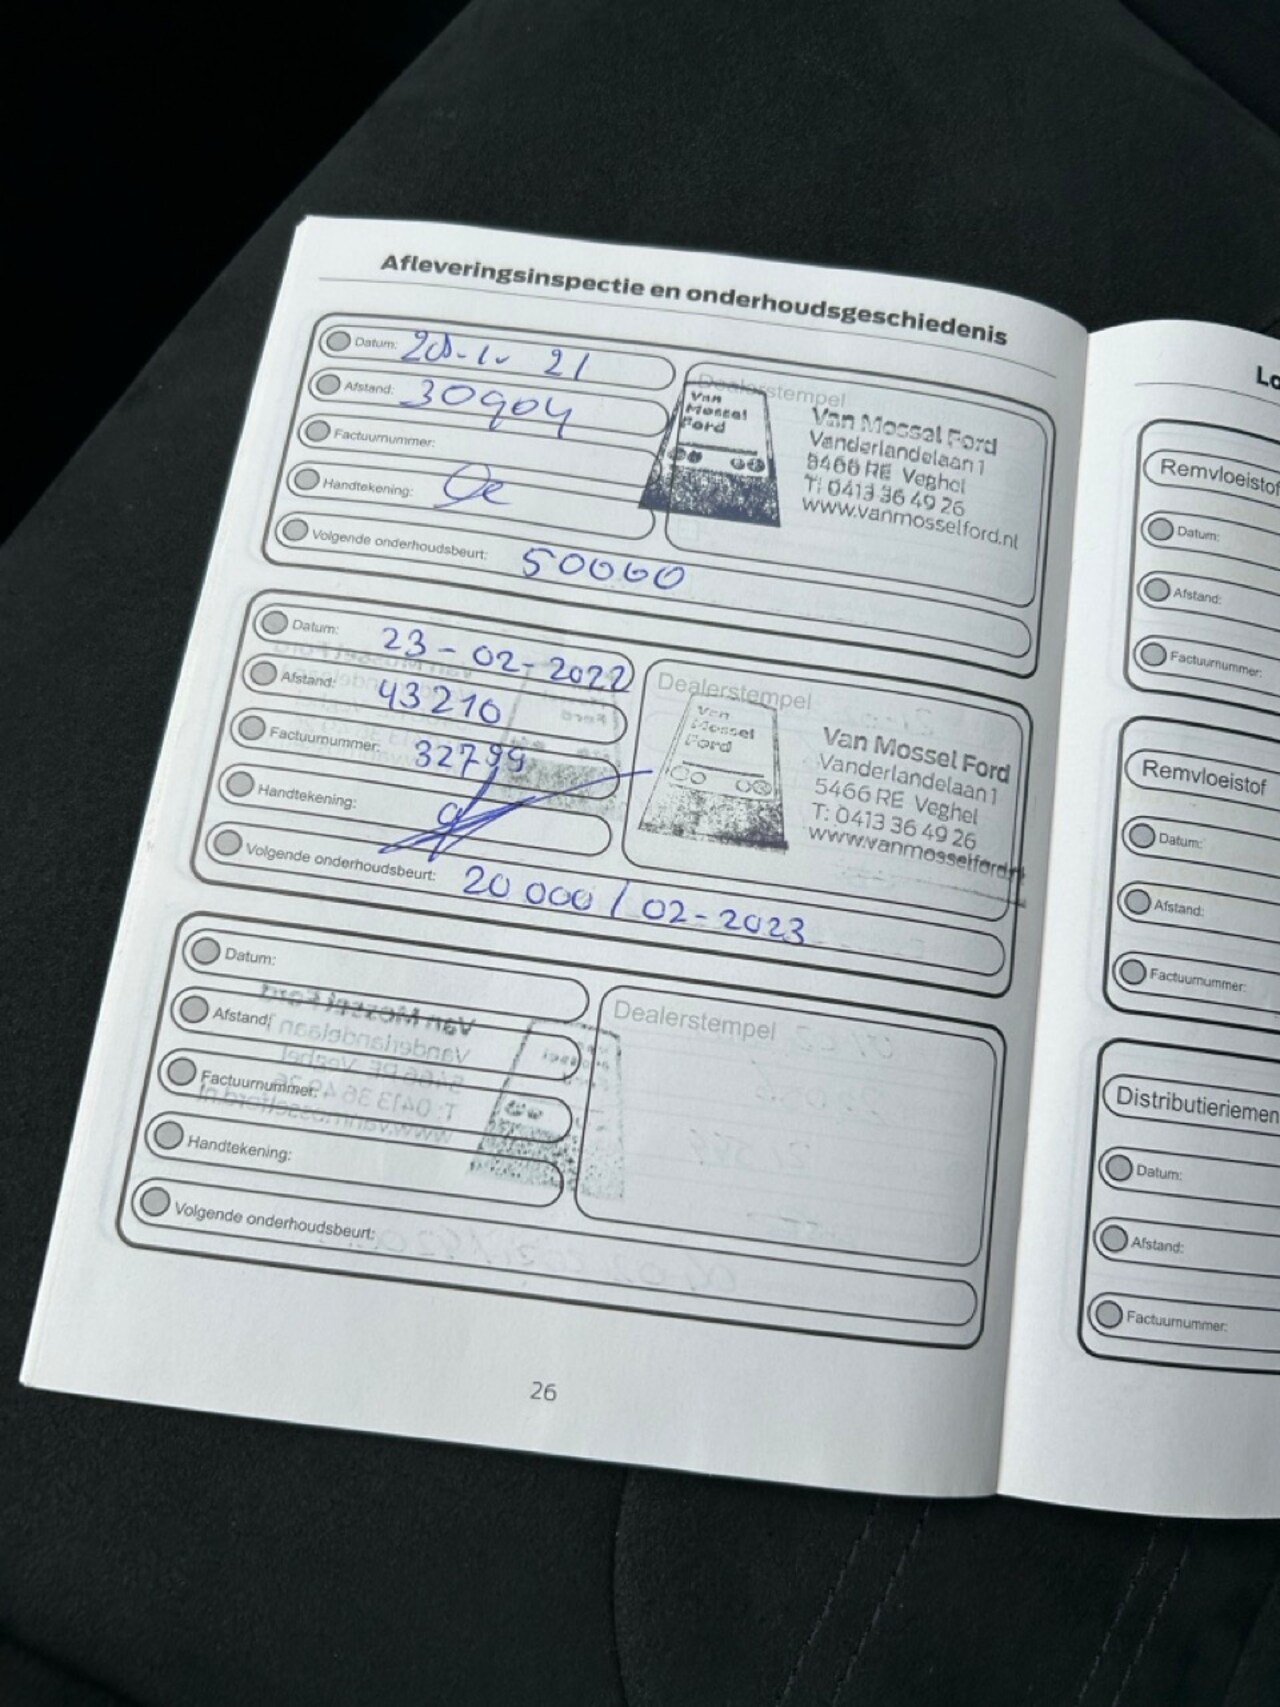 Afleveringsinspectie en onderhoudsgeschiedenis
Datum: 21
Afstand: 30904
Factuurnummer:
Handtekening:
Volgende onderhoudsbeurt: 50000
Dealerstempel
Van
Mossel
Ford
Van Mossel Ford
Vanderlandelaan 1
5466 RE Veghel
T: 0413 36 49 26
www.vanmosselford.nl
Datum: 23-02-2022
Afstand: 43210
Factuurnummer: 32799
Handtekening:
Volgende onderhoudsbeurt: 20 000 / 02-2023
Dealerstempel
Van
Mossel
Ford
Van Mossel Ford
Vanderlandelaan 1
5466 RE Veghel
T: 0413 36 49 26
www.vanmosselford.nl
Datum:
Afstand:
Factuurnummer:
Handtekening:
Volgende onderhoudsbeurt:
Dealerstempel
26
Lo
Remvloeistof
Datum:
Afstand:
Factuurnummer:
Remvloeistof
Datum:
Afstand:
Factuurnummer:
Distributieriemen
Datum:
Afstand:
Factuurnummer: